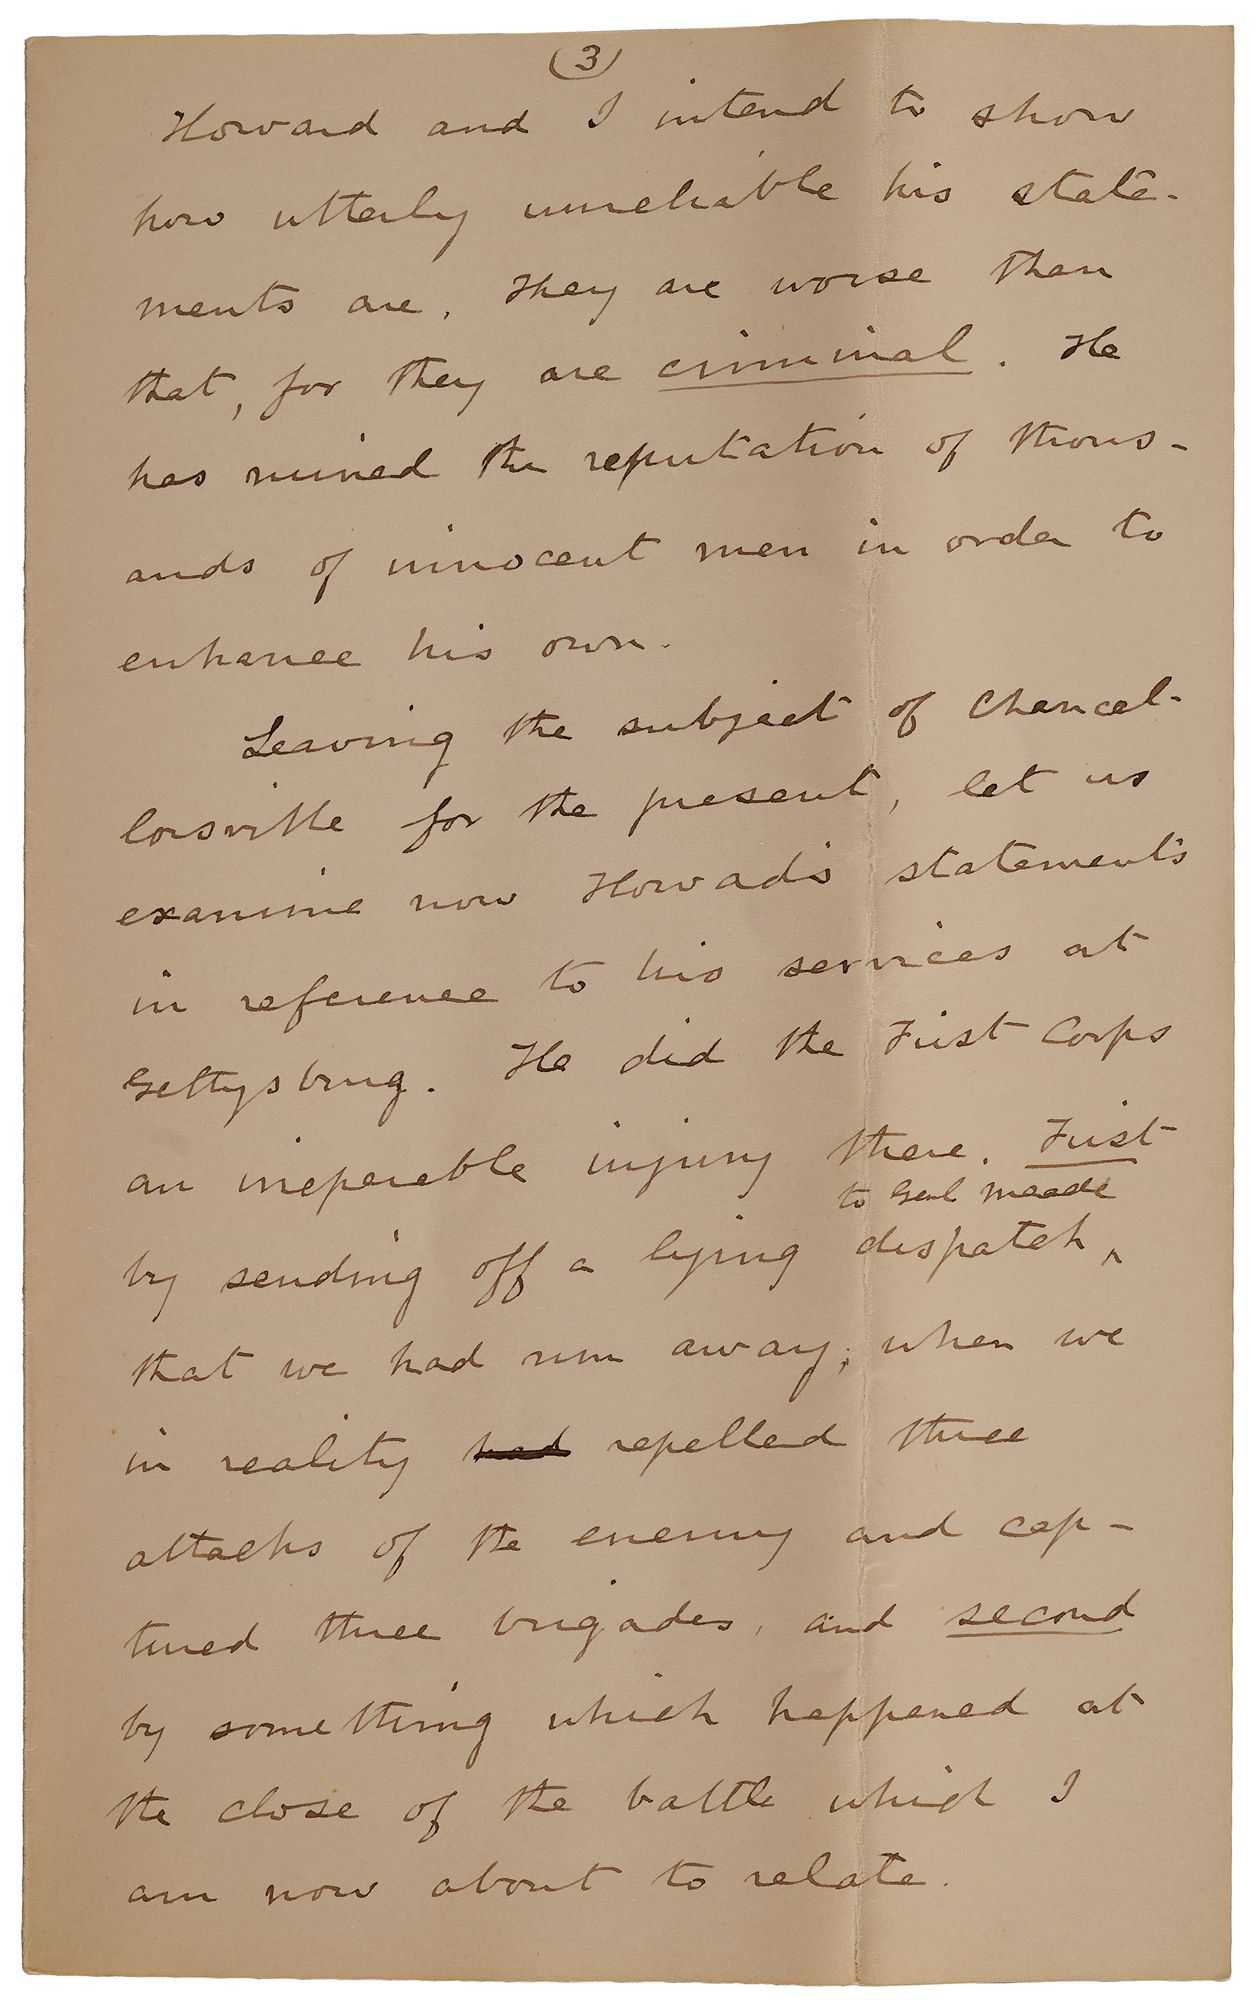 (3)
Howard and I intend to show
how utterly unreliable his state-
ments are. They are worse than
that, for they are criminal. He
has ruined the reputation of thous-
ands of innocent men in order to
enhance his own.
Leaving the subject of Chancel-
lorsville for the present, let us
examine now Howard's statements
in reference to his services at
Gettysburg. He did the First Corps
an ireperable injury there. First
to Genl Meade
by sending off a lying dispatch ^
that we had run away; when we
in reality had repelled three
attacks of the enemy and cap-
tured three brigades, and second
by something which happened at
the close of the battle which I
am now about to relate.